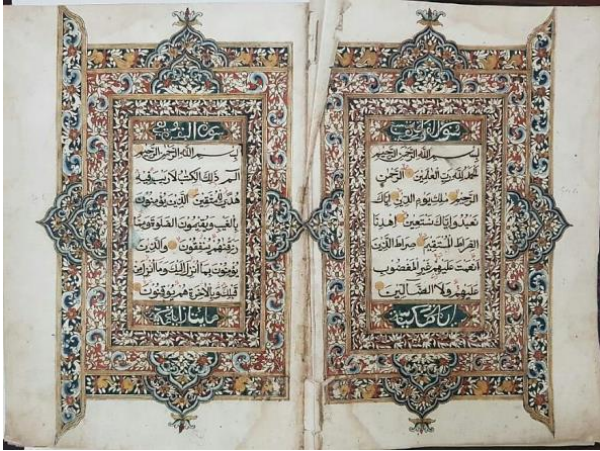 بسم الله الرحمن الرحيم
الحمد لله رب العلمين الرحمن
الرحيم ملك يوم الدين إياك
نعبد وإياك نستعين اهدنا
الصراط المستقيم صراط الذين
أنعمت عليهم غير المغضوب
عليهم ولا الضالين
بسم الله الرحمن الرحيم
الم ذلك الكتب لا ريب فيه
هدى للمتقين الذين يؤمنون
بالغيب ويقيمون الصلوة ومما
رزقنهم ينفقون والذين
يؤمنون بما أنزل إليك وما أنزل من
قبلك وبالأخرة هم يوقنون